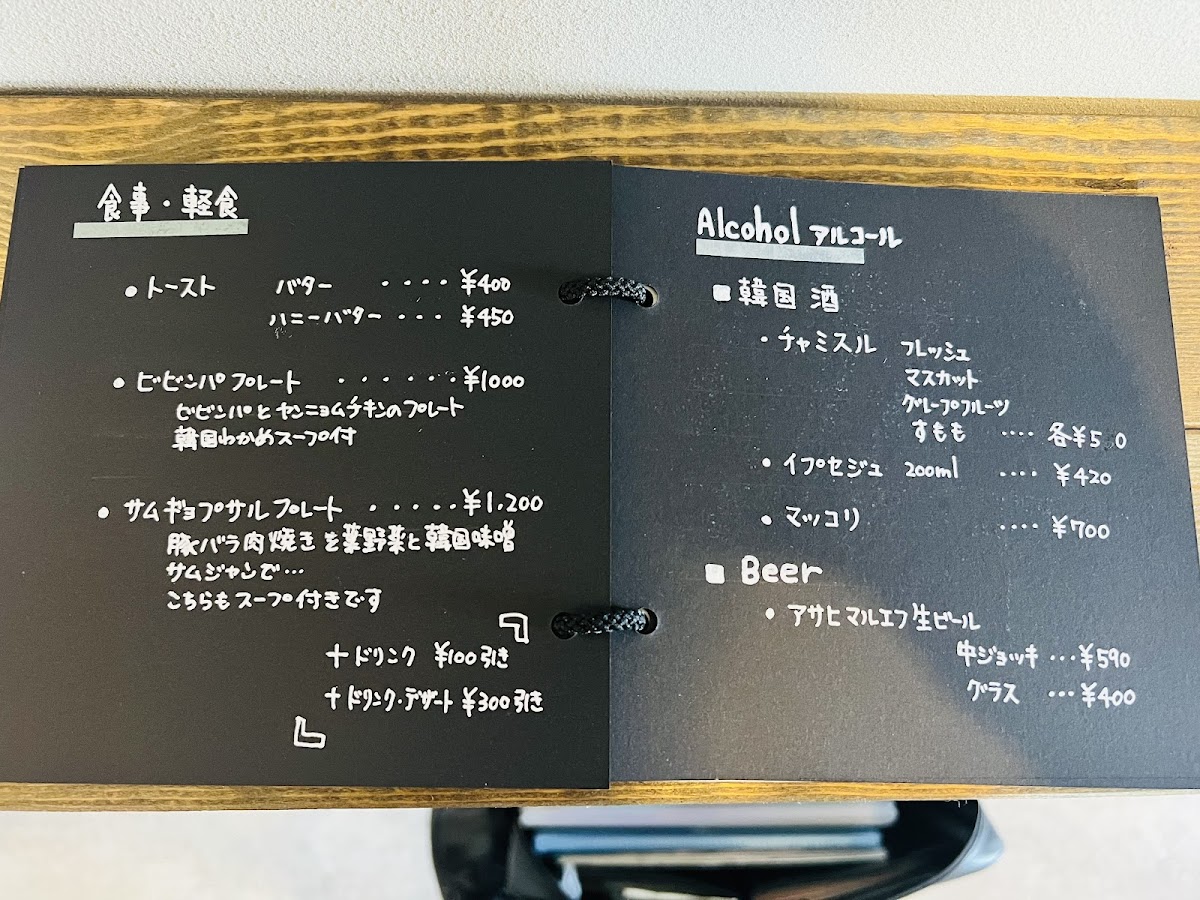 食事・軽食
• トースト バター ・・・・ ¥400
ハニーバター ・・・ ¥450
• ビビンパプレート ・・・・・・ ¥1000
ビビンパとヤンニョムチキンのプレート
韓国わかめスープ付
• サムギョプサルプレート ・・・・・ ¥1,200
豚バラ肉焼きを葉野菜と韓国味噌
サムジャンで…
こちらもスープ付きです
「
+ドリンク ¥100引き
+ドリンク・デザート ¥300引き
」
Alcohol アルコール
■ 韓国酒
・チャミスル フレッシュ
マスカット
グレープフルーツ
すもも ‥‥ 各
• イプセジュ 200ml ‥‥ ¥420
• マッコリ ‥‥ ¥700
■ Beer
• アサヒマルエフ生ビール
中ジョッキ ・・・ ¥590
グラス ・・・ ¥400